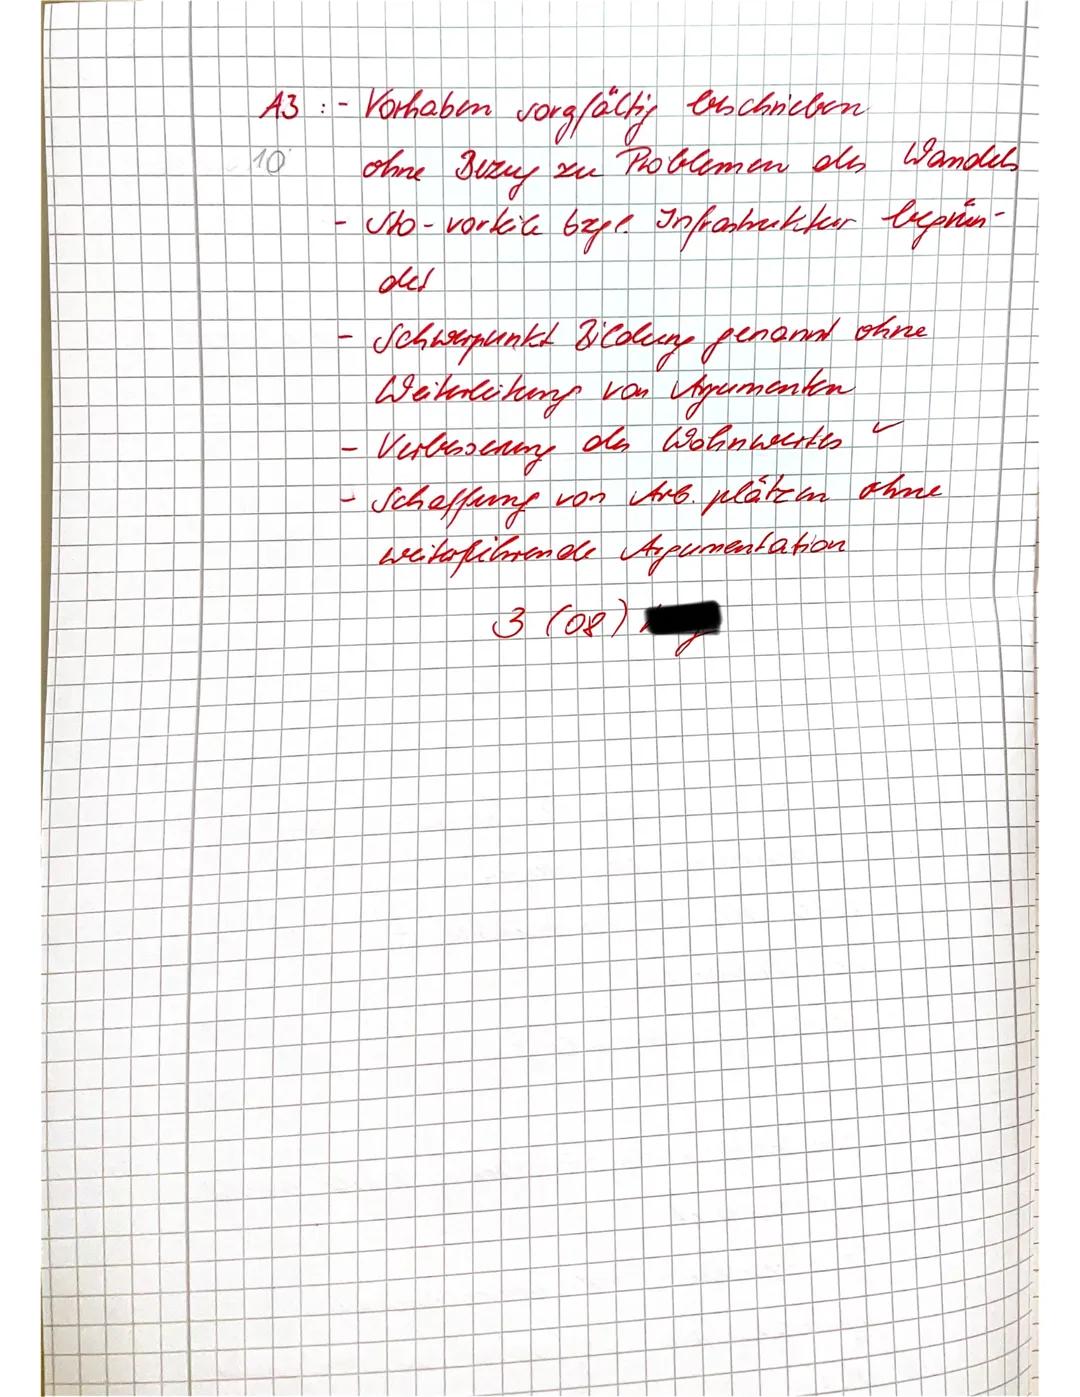 A3 : - Vorhaben sorgfältig beschrieben
10 ohne Bezug zu Problemen des Wandels
- Sto-vorteile bzgl. Infrastruktur begrün-
det
- Schwerpunkt Bildung genannt ohne
Weiterleitung von Argumenten
- Verbesserung des Wohnwertes ✓
- Schaffung von Arb. plätzen ohne
weiterführende Argumentation
3 (08)